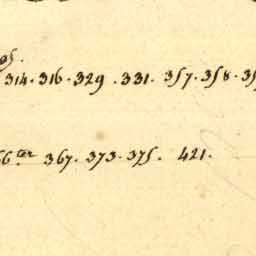 314. 316. 329. 331. 357. 358.
6.ter 367. 373. 375. 421.